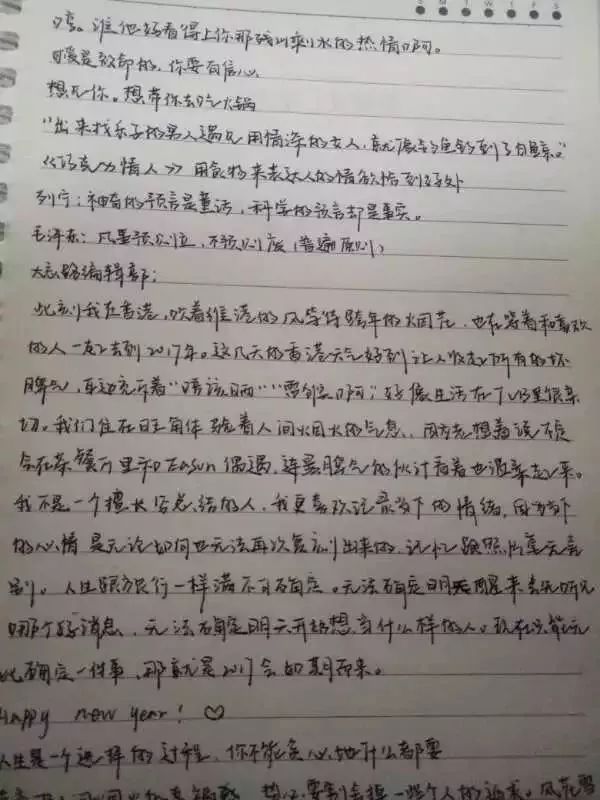 嘻。谁他妈看得上你那残叫剩水的热情啊。
暖是致命的,你要有信心
想见你。想带你去吃火锅
"出来找乐子的男人遇见用情深的女人,就像去钓鱼钓到了白鲸。"
《巧克力情人》用食物来表达人的情欲恰到好处
列宁:神奇的预言是童话,科学的预言却是事实。
毛泽东:凡事预则立,不预则废(普遍原则)
大志路编辑部:
此刻我在香港,吹着维港的风等待跨年的烟花,也在等着和喜欢
的人一起去到2017年。这几天的香港天气好到让人收起所有的坏
脾气,耳边充斥着"唔该晒""雪倒啊",好像生活在TVB里很亲
切。我们住在旺角体验着人间烟火的气息,因为总想着说不定
会在茶餐厅里和Eason偶遇,连最脾气的伙计看着也温柔起来。
我不是一个擅长写总结的人,我更喜欢记录当下的情绪,因为当下
的心情是无论如何也无法再次复刻出来的,记忆跟照片毫无差
别。人生跟旅行一样满不可确定。无法确定明天醒来会先听见
哪个好消息,无法确定明天开始想当什么样的人。现在只能无
比确定一件事,那就是2017会如期而来。
Happy new year! ♡
人生是一个选择的过程,你不能贪心地什么都要